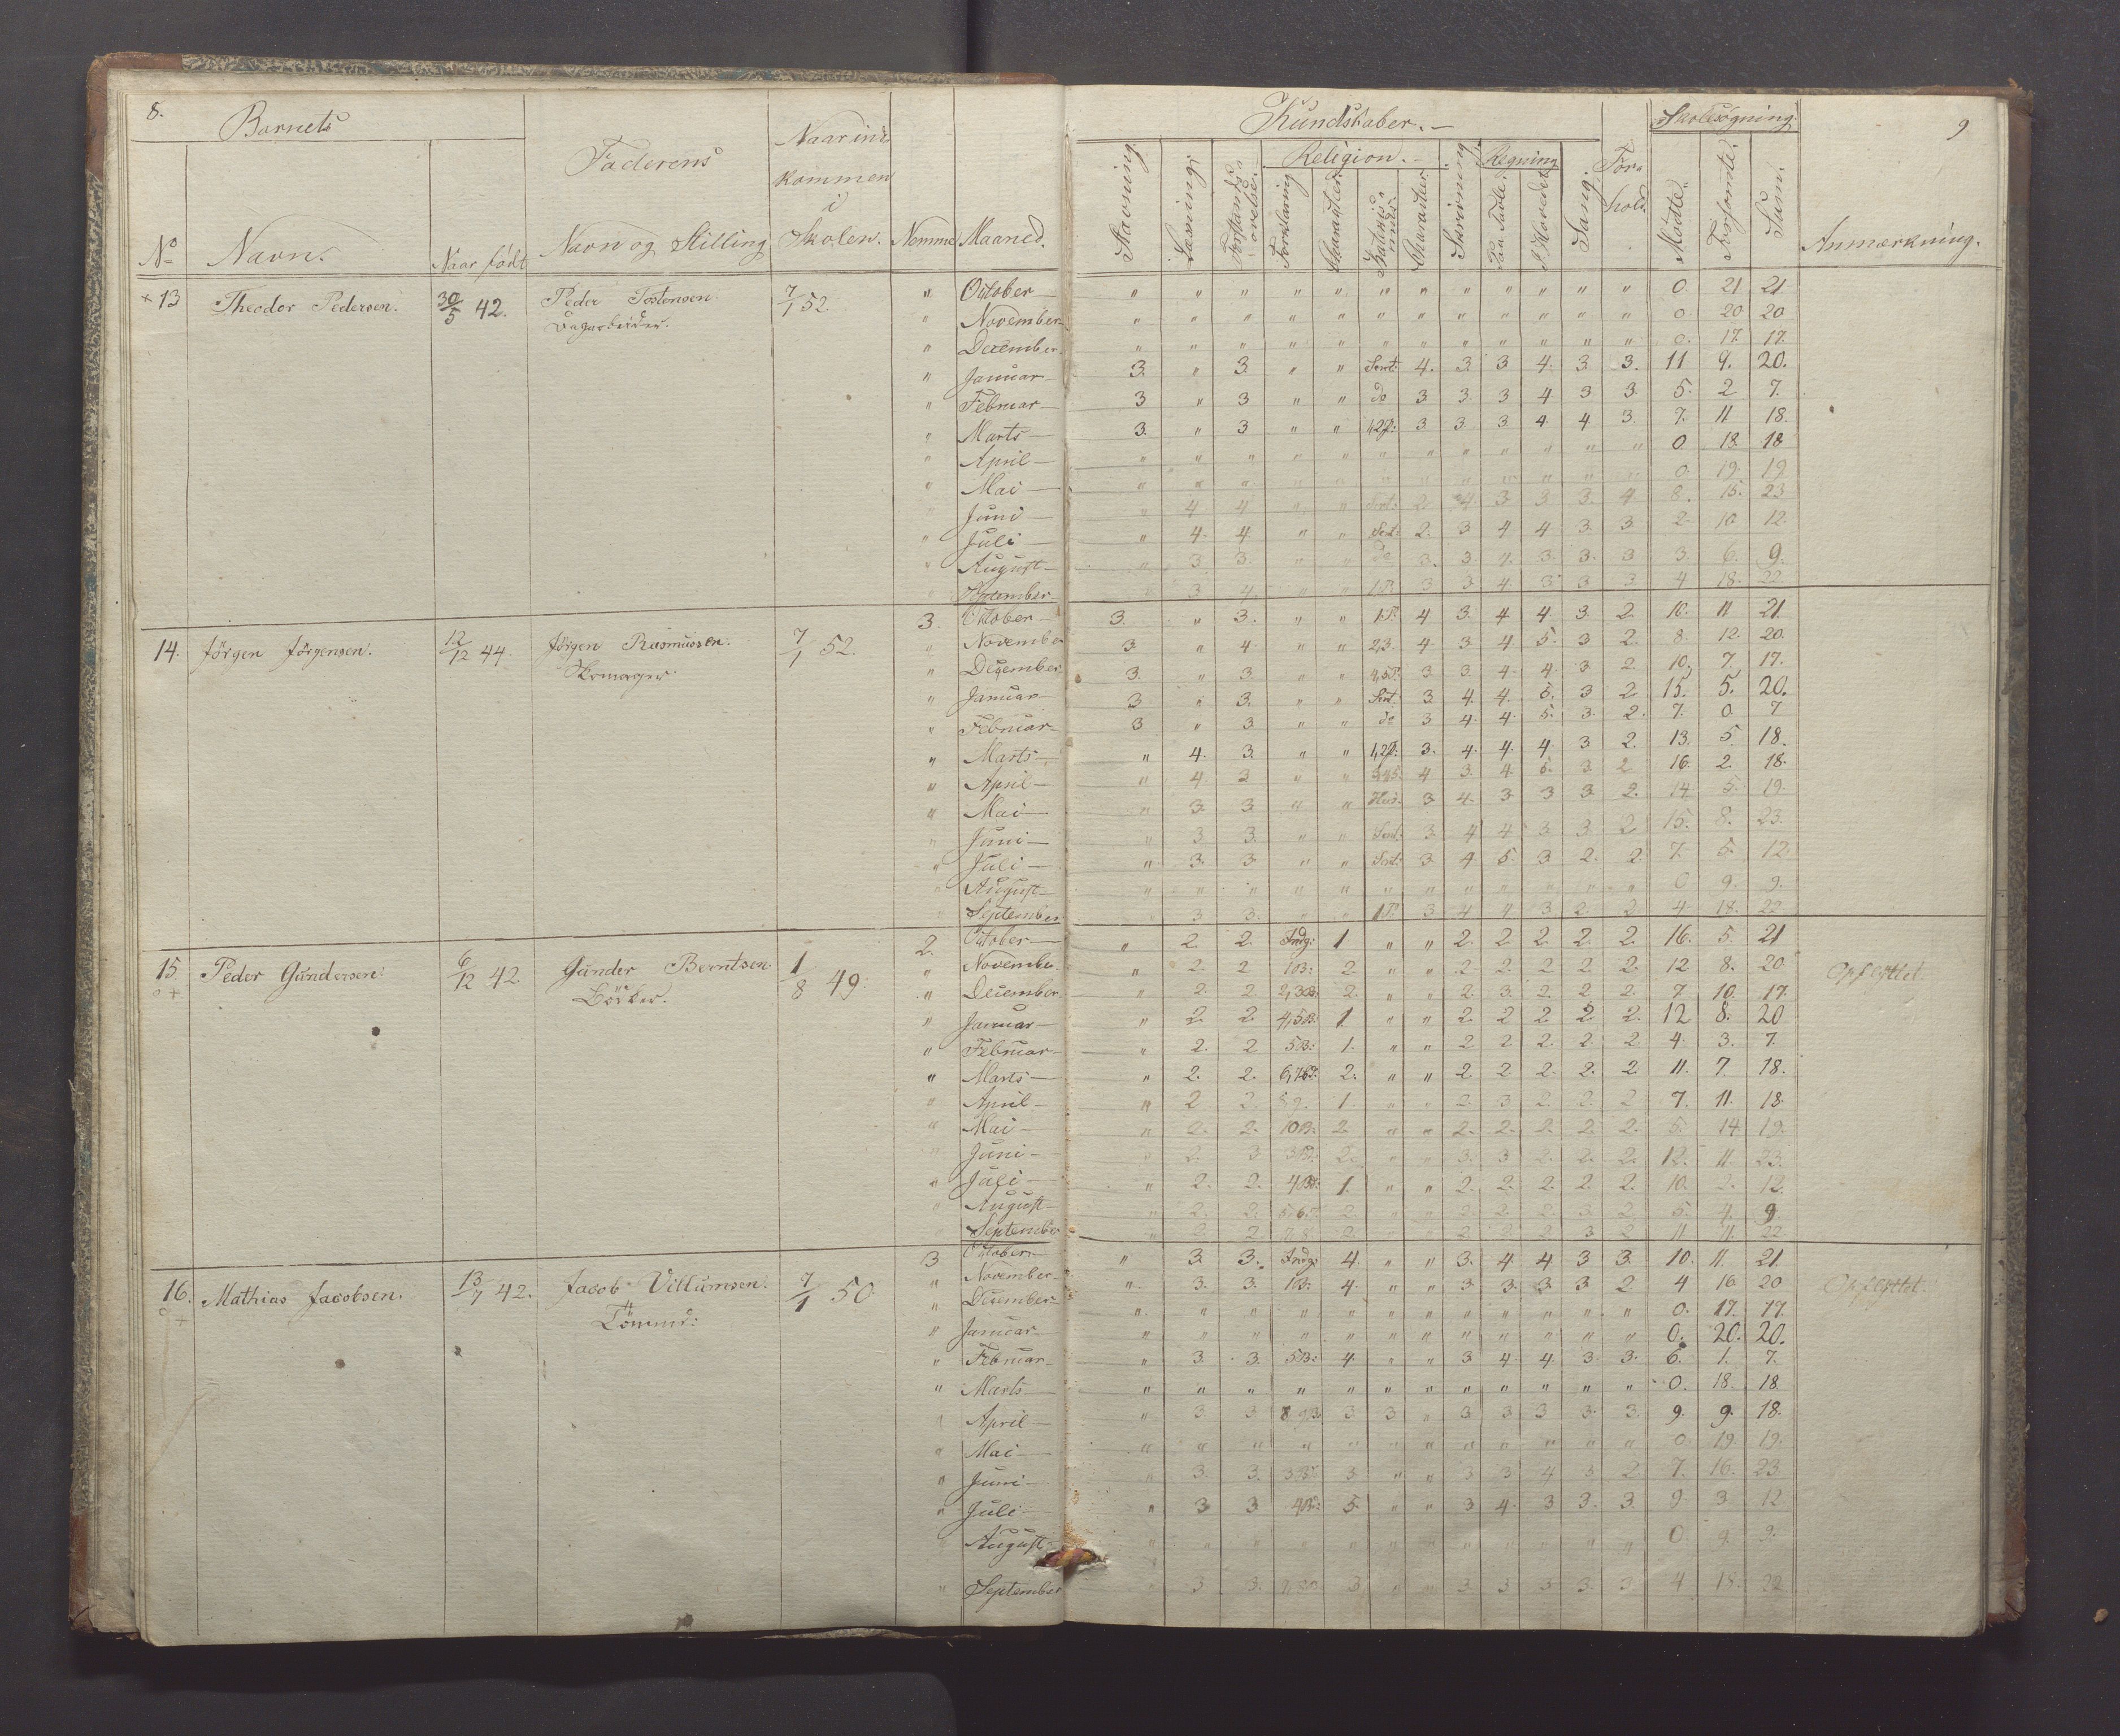 8.
Barnets
Faderens
Naar ind-
kommen
i
Skolen.
No Navn. Naar født Navn og Stilling Nemme Maaned.
+ 13 Theodor Pedersen. 30/5 42. Peder Tostensen 7/1 52.
Dagarbeider.
" October
" November
" December
" Januar
" Februar
" Marts
" April
" Mai
" Juni
" Juli
" August
" September
14. Jörgen Jörgensen. 12/12 44. Jörgen Rasmussen. 7/1 52.
Skomager.
3. Oktober
" November
" December
" Januar
" Februar
" Marts
" April
" Mai
" Juni
" Juli
" August
" September
15 Peder Gundersen. 6/12 42. Gunder Berntsen. 1/8 49.
2. October
" November
" December
" Januar
" Februar
" Marts
" April
" Mai
" Juni
" Juli
" August
" September
16. Mathias Jacobsen. 13/7 42. Jacob Villumsen. 7/1 50
Tömmr:
3 October
" November
" December
" Januar
" Februar
" Marts
" April
" Mai
" Juni
" Juli
" August
" September
9
Kundskaber.
Skolesøgning.
Religion. Regning For-
hold.
Stavning. Læsning. Forklaring Charakter Charakter Skrivning Paa Tavle. I Hovedet Sang. Mødte. Forsømte. Sum. Anmærkning.
" " " " " " " " " " " " 0. 21 21
" " " " " " " " " " " " 0 20 20
" " " " " " " " " " " " 0. 17. 17.
3. " 3. " " Sent: 4. 3. 3 4. 3. 3. 11 9. 20.
3 " 3 " " do 3 3. 3 4 3 3 5. 2 7.
3. " 3 " " 1,2P: 3 3. 3. 4. 4. 3. 7. 11 18.
" " " " " " " " " " " " 0 18. 18
" " " " " " " " " " " " 0. 19. 19
" 4 4 " " Sent: 2. 4. 3 3 3. 4 8. 15. 23
" 4. 4. " " Sent: 2. 3 4. 4 3. 3. 2. 10 12.
" 3 3. " " do 3. 3. 4. 3. 3. 3 3. 6. 9.
" 3 4 " " 1P. 3 3 4 3 3 3 4 18. 22
3. " 3. " " 1P. 4 3. 4 4. 3. 2. 10. 11 21.
3. " 4 " " 2,3. 4. 3 4. 5. 3 2. 8. 12. 20.
3. " 3. " " 4,5P. 3 3. 4. 4. 3 2. 10. 7. 17.
3 " 3. " " Sent. 3 4. 4. 5. 3 2 15. 5. 20.
3 " 3 " " do 3 4. 4. 5. 3. 2. 7. 0 7
" 4. 3. " " 1,2P: 3. 4. 4. 4. 3 2. 13. 5 18.
" 4 3 " " 3,4,5. 4 3. 4. 5. 3. 2 16. 2. 18.
" 3. 3. " " 3 4. 3. 3 3. 2. 14. 5. 19.
" 3 3. " " Sent: 3. 4 4 3. 3. 2 15. 8. 23.
" 3. 3. " " Sent: 3 4 5. 3 2. 2. 7. 5. 12.
" " " " " " " " " " " " 0 9. 9.
" 3 3. " " 1P. 3 4 4 3 2 2 4 18. 22
" 2. 2. Indg: 1 " " 2. 2. 2. 2. 2. 16. 5. 21
" 2. 2 1B: 2. " " 2. 2. 2. 2. 2. 12 8. 20 Opflyttet.
" 2. 2. 2,3B: 2. " " 2. 3. 2. 2 2. 7. 10. 17.
" 2. 2. 4,5B: 1 " " 2. 2 2 2. 2. 12 8. 20
" 2. 2 5B: 1. " " 2. 2 2. 2. 2 4. 3. 7.
" 2. 2. 2. " " 2. 2 2. 2. 2 11. 7 18.
" 2 2. 1 " " 2. 3 2. 2. 2 7. 11. 18.
" 2. 2. 10B: 2. " " 2. 2. 2. 2. 2. 5. 14 19.
" 2. 3 2. " " 3. 3 2. 2. 2. 12. 11. 23.
" 2. 2. 1. " " 2. 2. 2. 2. 2. 10. 2. 12.
" 2. 2. 2. " " 2. 2. 2. 3. 2. 5. 4. 9
" 2 2 2 " " 2 2 2 3 2 11 11. 22
" 3. 3. Indg: 4. " " 3. 4 4 3 3. 10. 11. 21.
" 3. 3. 1B: 4. " " 3 3. 3 3 2 4 16 20 Opflyttet.
" " " " " " " " " " " " 0. 17. 17.
" " " " " " " " " " " " 0. 20. 20.
" 3. 3. 5B: 4. " " 3 4. 4. 3. 3. 6. 1. 7.
" " " " " " " " " " " " 0. 18. 18
" 3 3 3 3 " 3. 3 3 3. 3. 9. 9. 18.
" " " " " " " " " " " " 0 19. 19.
" 3. 3. 3B: 3 " " 3 3 4 3. 2 7. 16. 23
" 3 3 4B: 5. " " 3 4. 3 3. 3. 9 3 12
" " " " " " " " " " " " 0 9. 9.
" 3 3. 3 " " 3 3 3 3. 3 4 18. 22